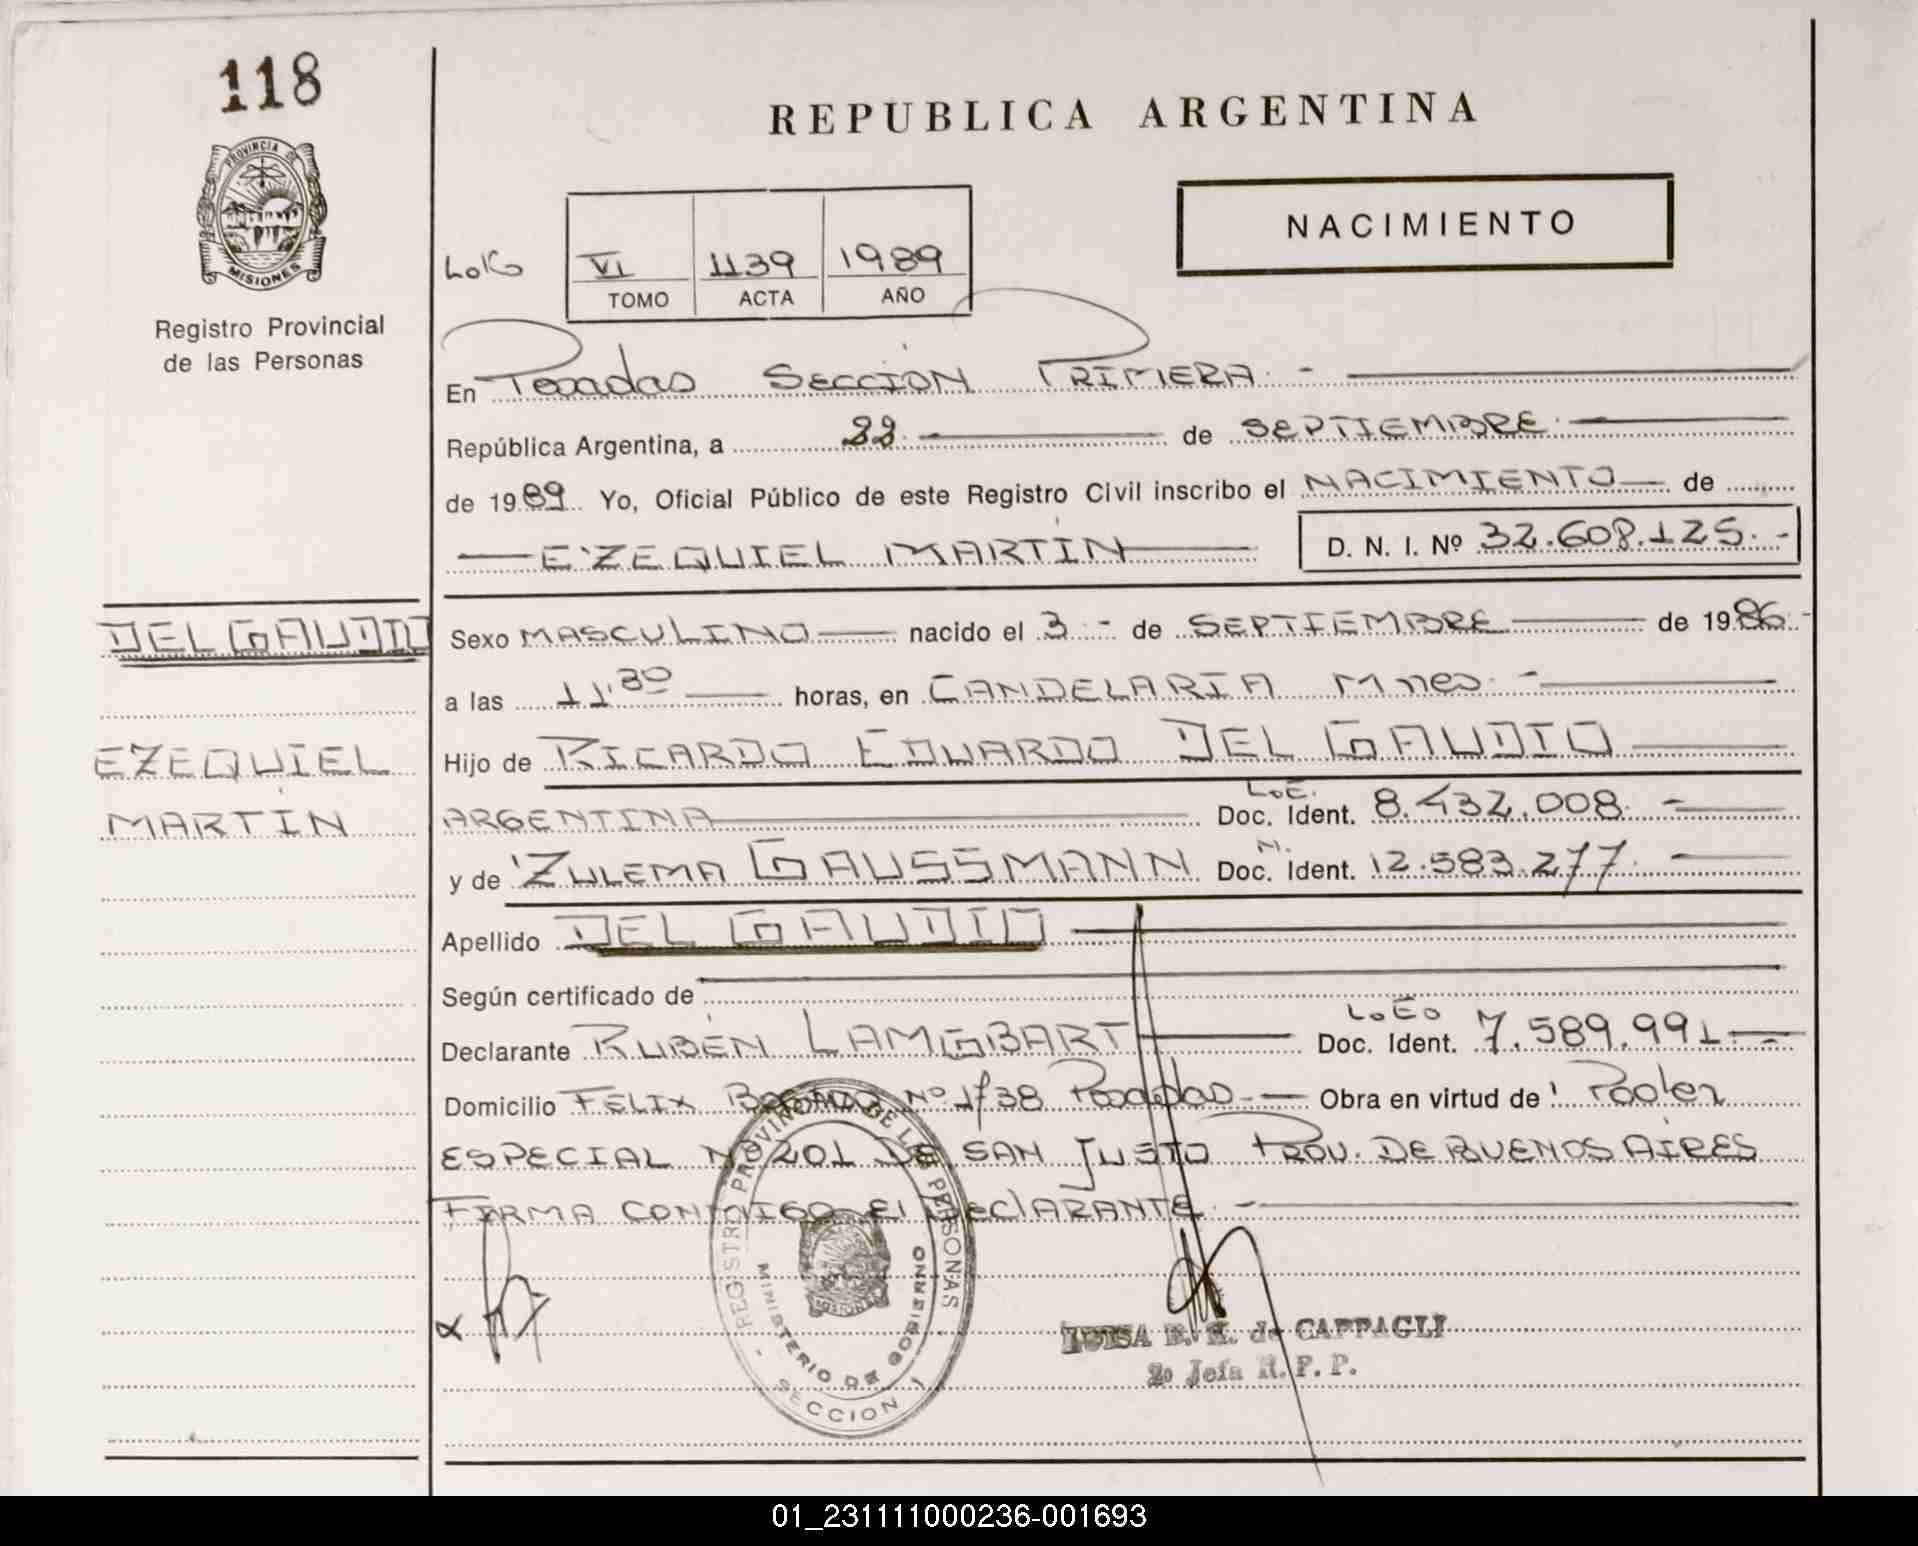 118
REPUBLICA ARGENTINA
PROVINCIA DE
MISIONES
NACIMIENTO
VI 1139 1989
TOMO ACTA AÑO
Registro Provincial
de las Personas
En Posadas SECCIÓN PRIMERA
República Argentina, a 22 de SEPTIEMBRE
de 1989 Yo, Oficial Público de este Registro Civil inscribo el NACIMIENTO de
EZEQUIEL MARTÍN D. N. I. Nº 32.608.125.-
DEL GAUDIO
Sexo MASCULINO nacido el 3 - de SEPTIEMBRE de 1986.-
a las 11'30 horas, en CANDELARIA Mnes.-
EZEQUIEL
Hijo de RICARDO EDUARDO DEL GAUDIO
MARTÍN
L.E.
ARGENTINA Doc. Ident. 8.432.008.-
N.
y de ZULEMA GAUSSMANN Doc. Ident. 12.583.277.
Apellido DEL GAUDIO
Según certificado de
L.E.
Declarante RUBÉN LAMGBART Doc. Ident. 7.589.991
Domicilio FELIX Nº 1738 Posadas.- Obra en virtud de Poder
ESPECIAL Nº 201 DE SAN JUSTO PROV. DE BUENOS AIRES
FIRMA CONMIGO El DEClARANTE.-
REGISTRO PROVINCIAL DE LAS PERSONAS
MINISTERIO DE GOBIERNO
SECCION 1
LUISA E. de CAPPAGLI
2º Jefa R. P. P.
01_231111000236-001693